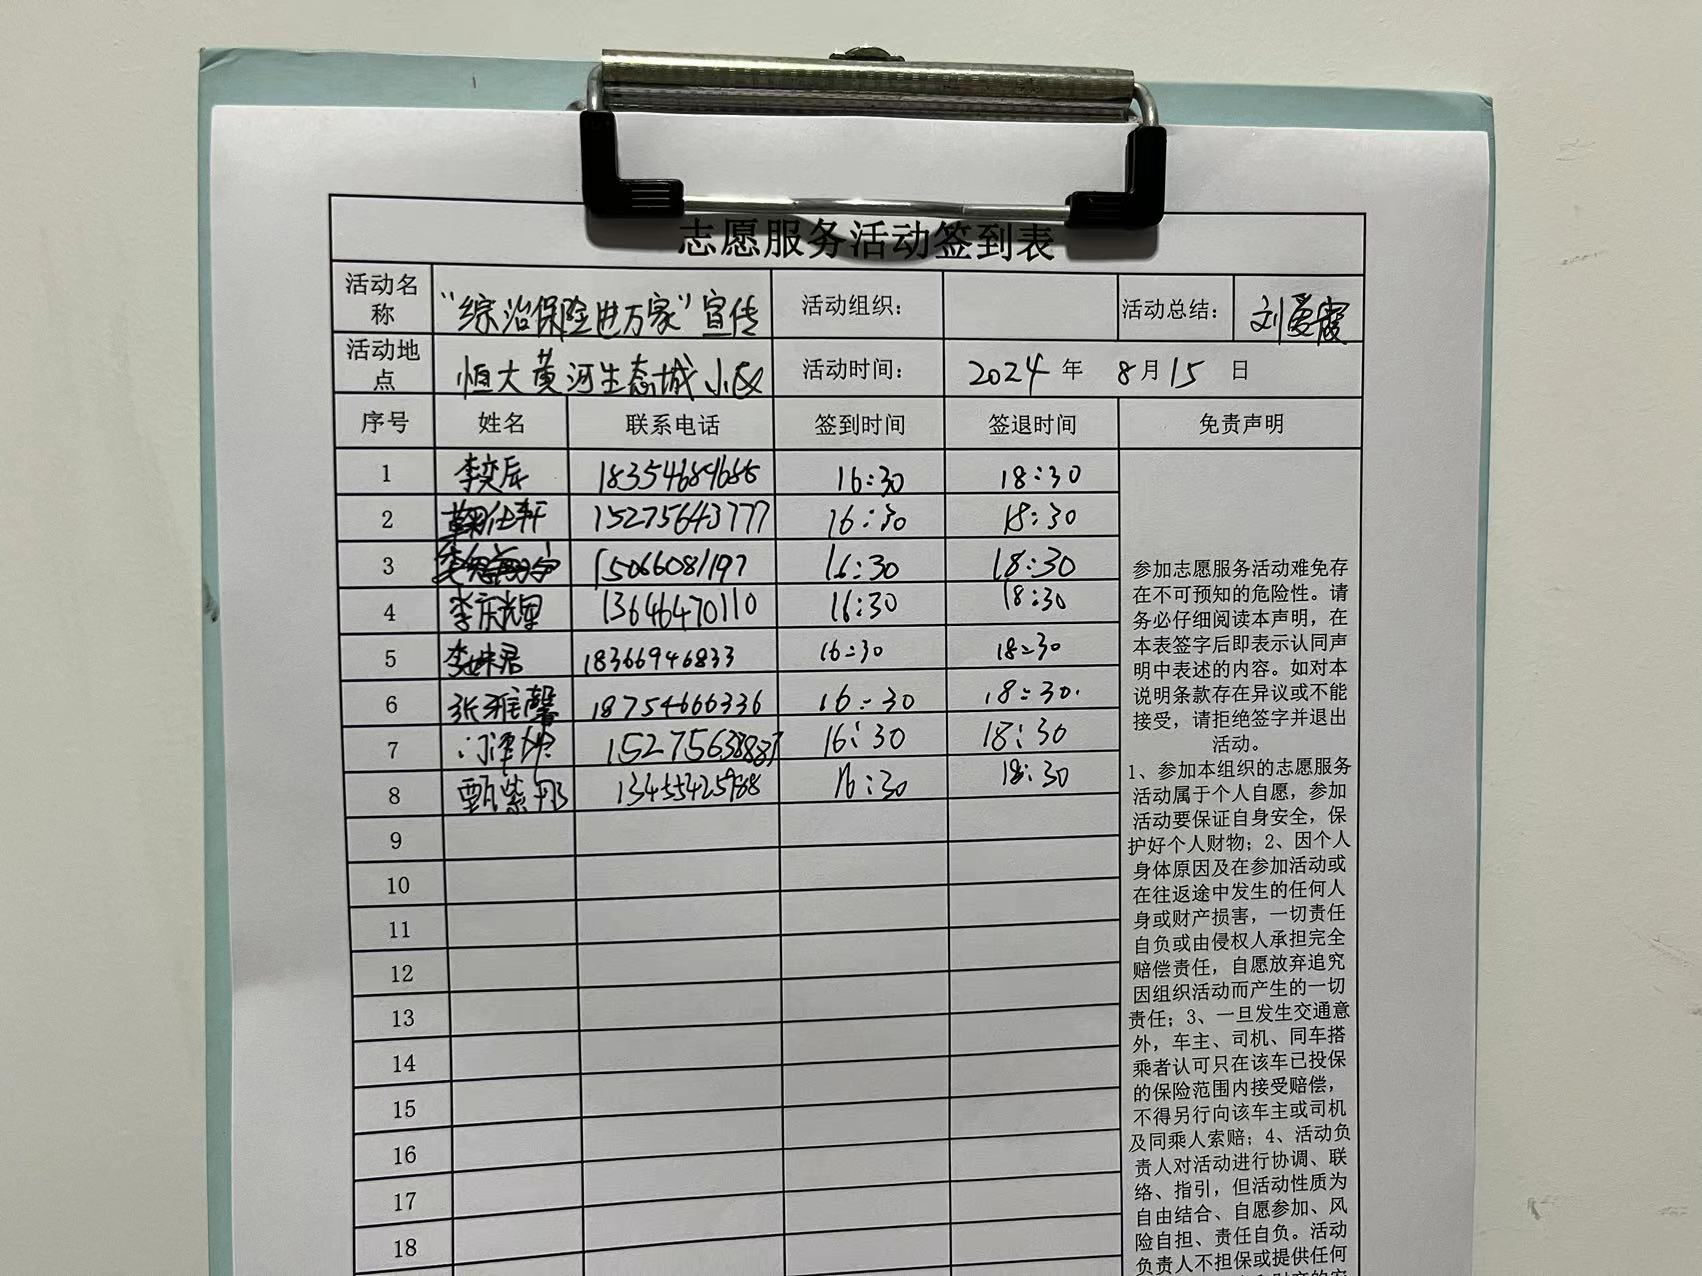 志愿服务活动签到表
活动名称 “综治保险进万家”宣传 活动组织： 活动总结： 刘爱霞
活动地点 恒大黄河生态城小区 活动时间： 2024 年 8 月 15 日
序号 姓名 联系电话 签到时间 签退时间 免责声明
1 李奕辰 16:30 18:30
2 鞠仕轩 15275643777 16:30 18:30
3 15066081197 16:30 18:30
4 李庆辉 13646470110 16:30 18:30
5 李姝君 18366946833 16:30 18:30
6 张雅馨 18754666336 16:30 18:30
7 16:30 18:30
8 甄紫彤 16:30 18:30
9
10
11
12
13
14
15
16
17
18
参加志愿服务活动难免存
在不可预知的危险性。请
务必仔细阅读本声明，在
本表签字后即表示认同声
明中表述的内容。如对本
说明条款存在异议或不能
接受，请拒绝签字并退出
活动。
1、参加本组织的志愿服务
活动属于个人自愿，参加
活动要保证自身安全，保
护好个人财物；2、因个人
身体原因及在参加活动或
在往返途中发生的任何人
身或财产损害，一切责任
自负或由侵权人承担完全
赔偿责任，自愿放弃追究
因组织活动而产生的一切
责任；3、一旦发生交通意
外，车主、司机、同车搭
乘者认可只在该车已投保
的保险范围内接受赔偿，
不得另行向该车主或司机
及同乘人索赔；4、活动负
责人对活动进行协调、联
络、指引，但活动性质为
自由结合、自愿参加、风
险自担、责任自负。活动
负责人不担保或提供任何